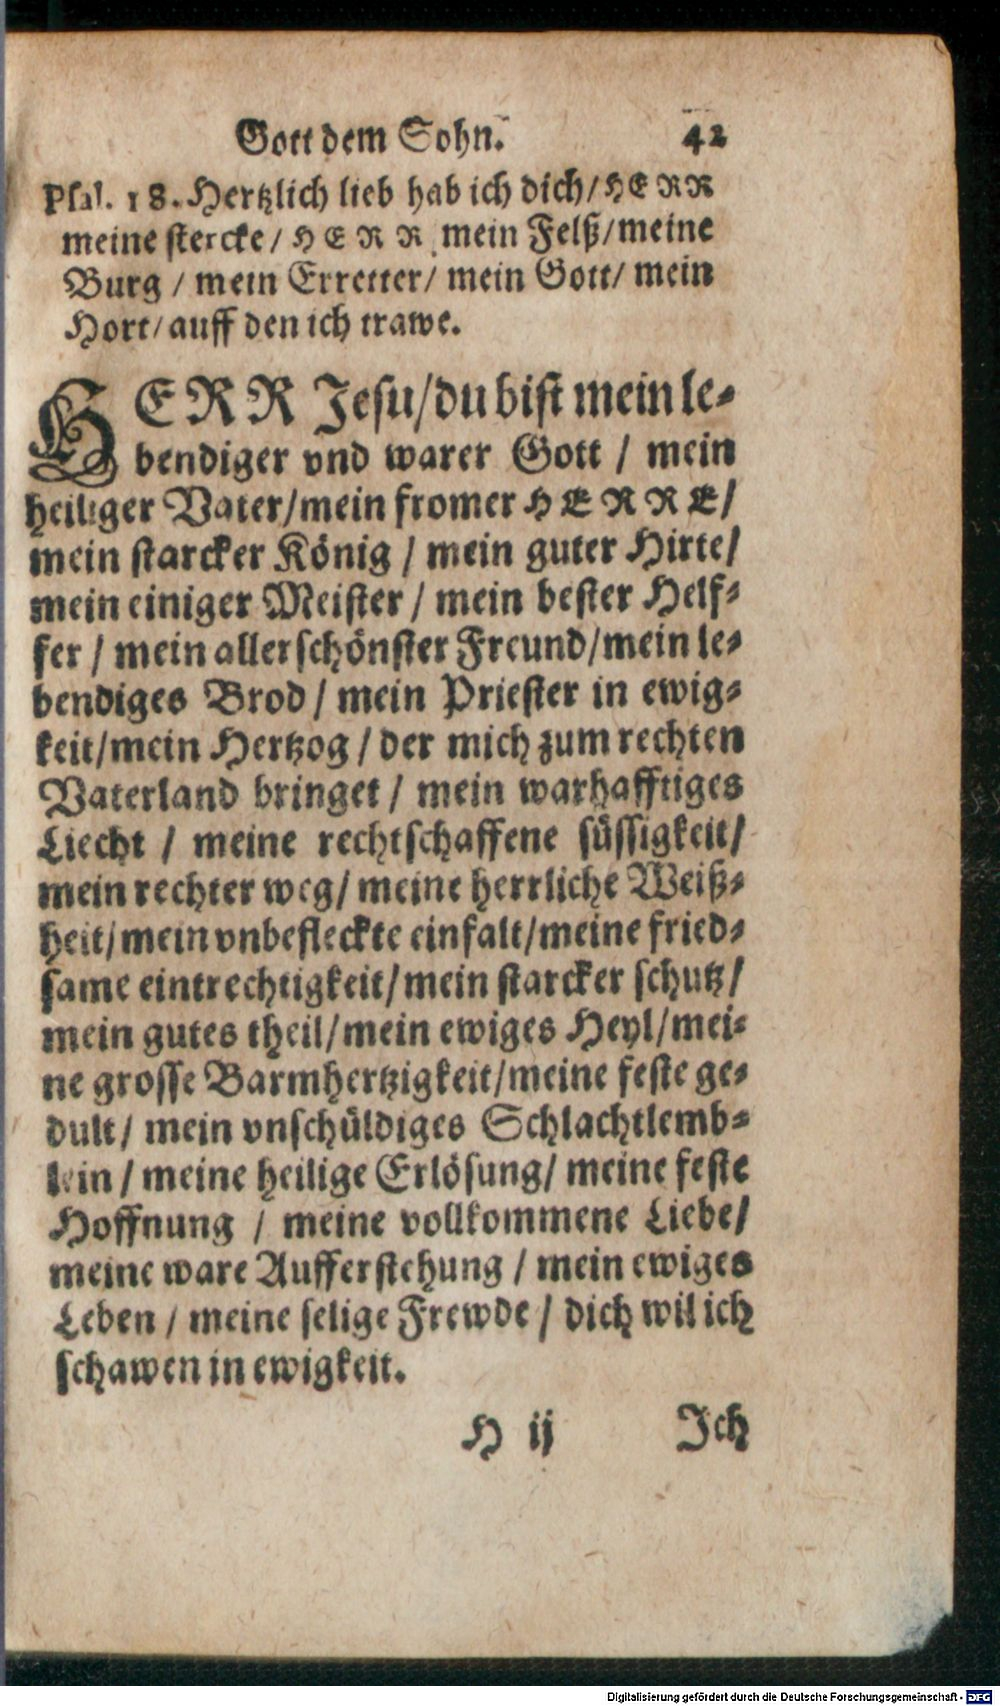 Gott dem Sohn. 42
Psal. 18. Hertzlich lieb hab ich dich/ HERR
meine stercke/ HERR mein Felß/ meine
Burg / mein Erretter/ mein Gott/ mein
Hort/ auff den ich trawe.
HERR Jesu/ du bist mein le-
bendiger vnd warer Gott / mein
heiliger Vater/ mein fromer HERRE/
mein starcker König / mein guter Hirte/
mein einiger Meister / mein bester Helf-
fer / mein allerschönster Freund/ mein le-
bendiges Brod / mein Priester in ewig-
keit/ mein Hertzog / der mich zum rechten
Vaterland bringet / mein warhafftiges
Liecht / meine rechtschaffene süssigkeit/
mein rechter weg/ meine herrliche Weiß-
heit/ mein vnbefleckte einfalt/ meine fried-
same eintrechtigkeit/ mein starcker schutz/
mein gutes theil/ mein ewiges Heyl/ mei-
ne grosse Barmhertzigkeit/ meine feste ge-
dult/ mein vnschüldiges Schlachtlemb-
lein / meine heilige Erlösung/ meine feste
Hoffnung / meine vollkommene Liebe/
meine ware Aufferstehung / mein ewiges
Leben / meine selige Frewde / dich wil ich
schawen in ewigkeit.
H ij Ich
Digitalisierung gefördert durch die Deutsche Forschungsgemeinschaft - DFG